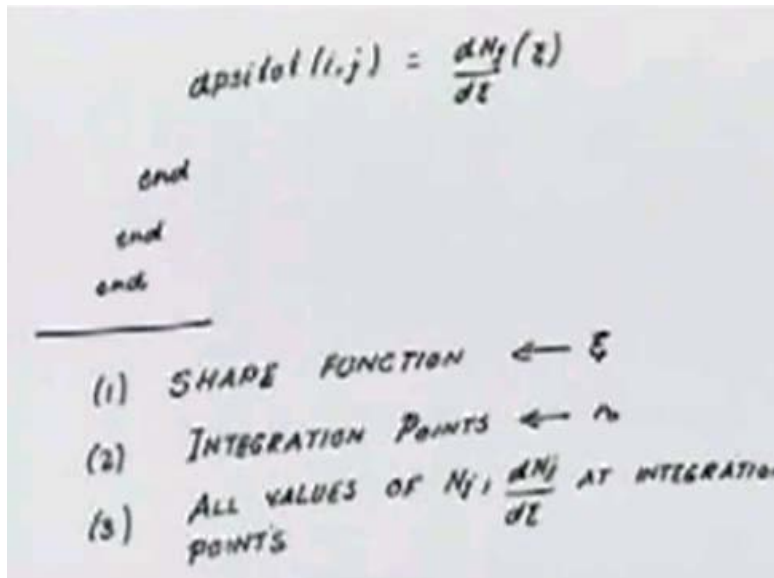 dpsitot (i,j) = dNj/dξ (ξ)
end
end
end
(1) SHAPE FUNCTION ← ξ
(2) INTEGRATION POINTS ←
(3) ALL VALUES OF Nj, dNj/dξ AT INTEGRATION
POINTS